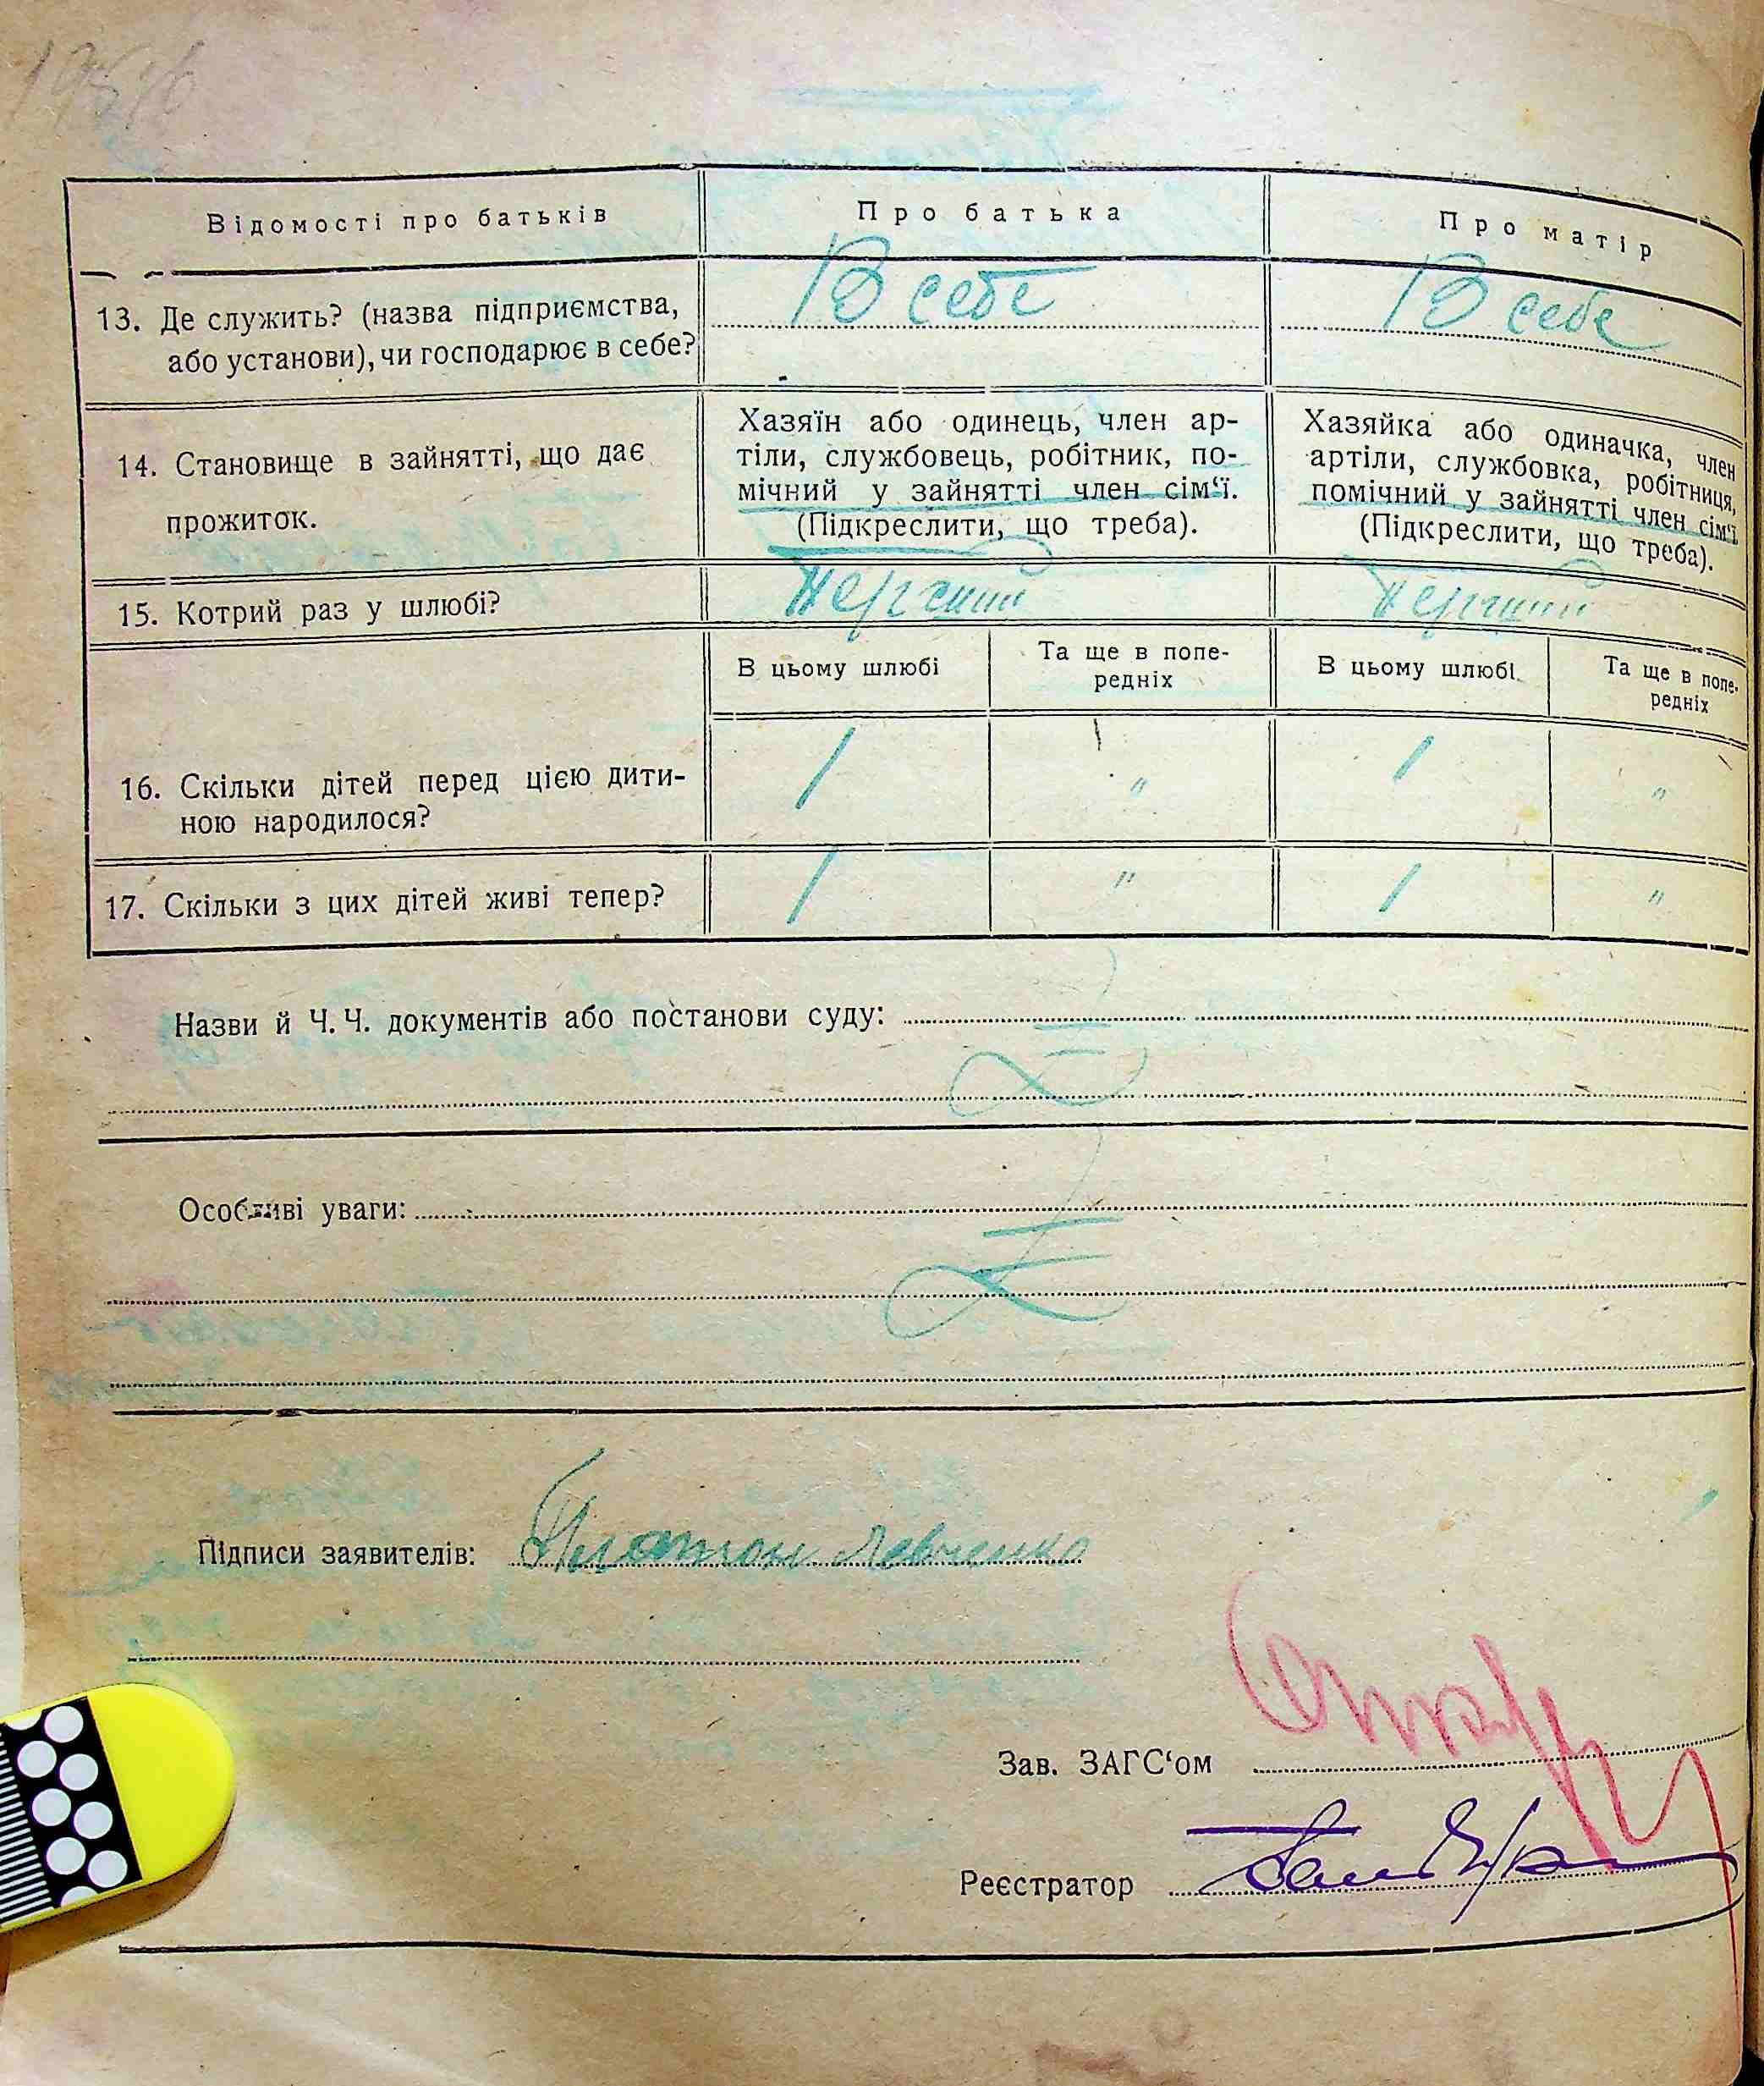 Відомості про батьків
Про батька
Про матір
13. Де служить? (назва підприємства,
або установи), чи господарює в себе?
В себе
В себе
14. Становище в зайнятті, що дає
прожиток.
Хазяїн або одинець, член ар-
тіли, службовець, робітник, по-
мічний у зайнятті член сім‘ї.
(Підкреслити, що треба).
Хазяйка або одиначка, член
артіли, службовка, робітниця,
помічний у зайнятті член сім‘ї
(Підкреслити, що треба).
15. Котрий раз у шлюбі?
Перший
Перший
В цьому шлюбі
Та ще в попе-
редніх
В цьому шлюбі
Та ще в попе-
редніх
16. Скільки дітей перед цією дити-
ною народилося?
1
"
1
"
17. Скільки з цих дітей живі тепер?
1
"
1
"
Назви й Ч. Ч. документів або постанови суду:
Особливі уваги:
Підписи заявителів: Платон Левченко
Зав. ЗАГС‘ом
Реєстратор